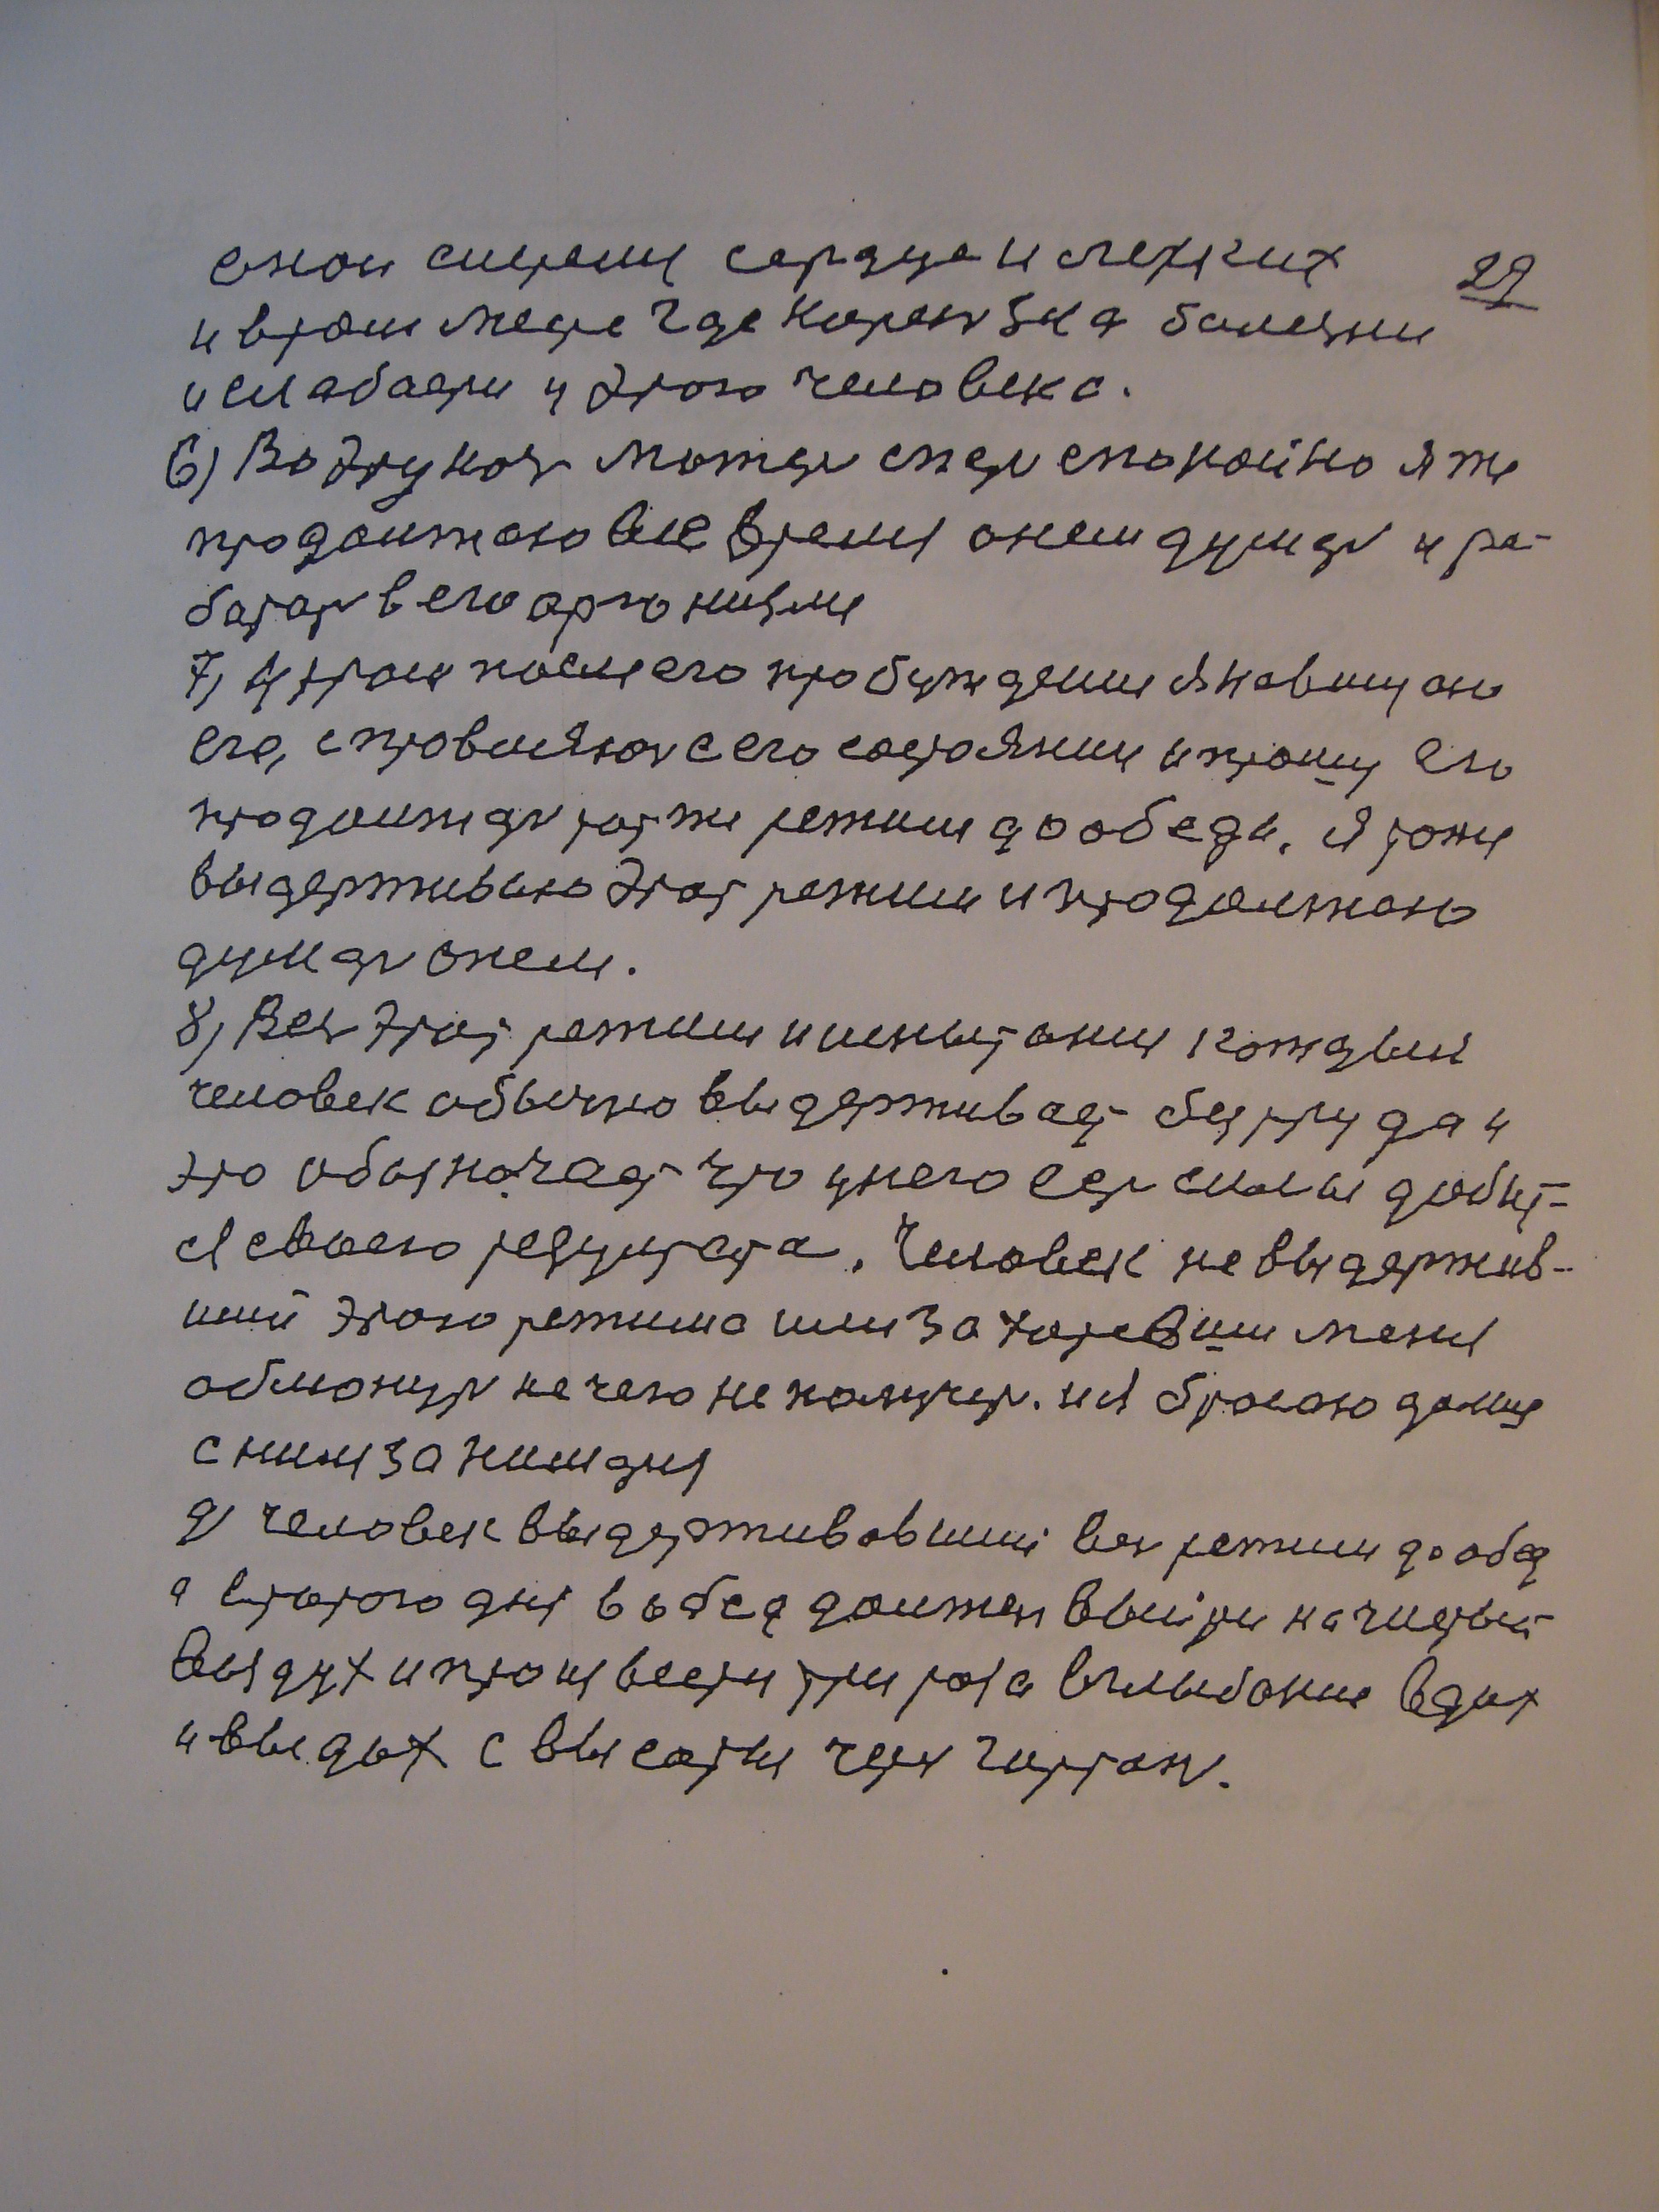 сной системы сердца и легких 29
и в том месте где корень зна болезни
и слабости у этого человека.
6) Во эту ночь может спать спокойно я же
продолжаю все время о нем думать и ра-
ботать в его организме
7) Утром после его пробуждения я навещаю
его, справляюсь с его состояния и прошу его
продолжать тот же режим до обеда. Я тоже
выдерживаю этот режим и продолжаю
думать о нем.
8) Весь этот режим и испытания каждый
человек обычно выдерживает без труда и
это обозначает что у него есть силы добит-
ся своего результата. Человек не выдержив-
ший этого режима или захотевши меня
обмануть нечего не получит. и я бросаю далше
с ним заниматся
9) человек выдерживавший весь режим до обед
а второго дня в обед должен выйти на чистый
воздух и произвести три раза вглыбокие вдох
и выдох с высоты через гортань.